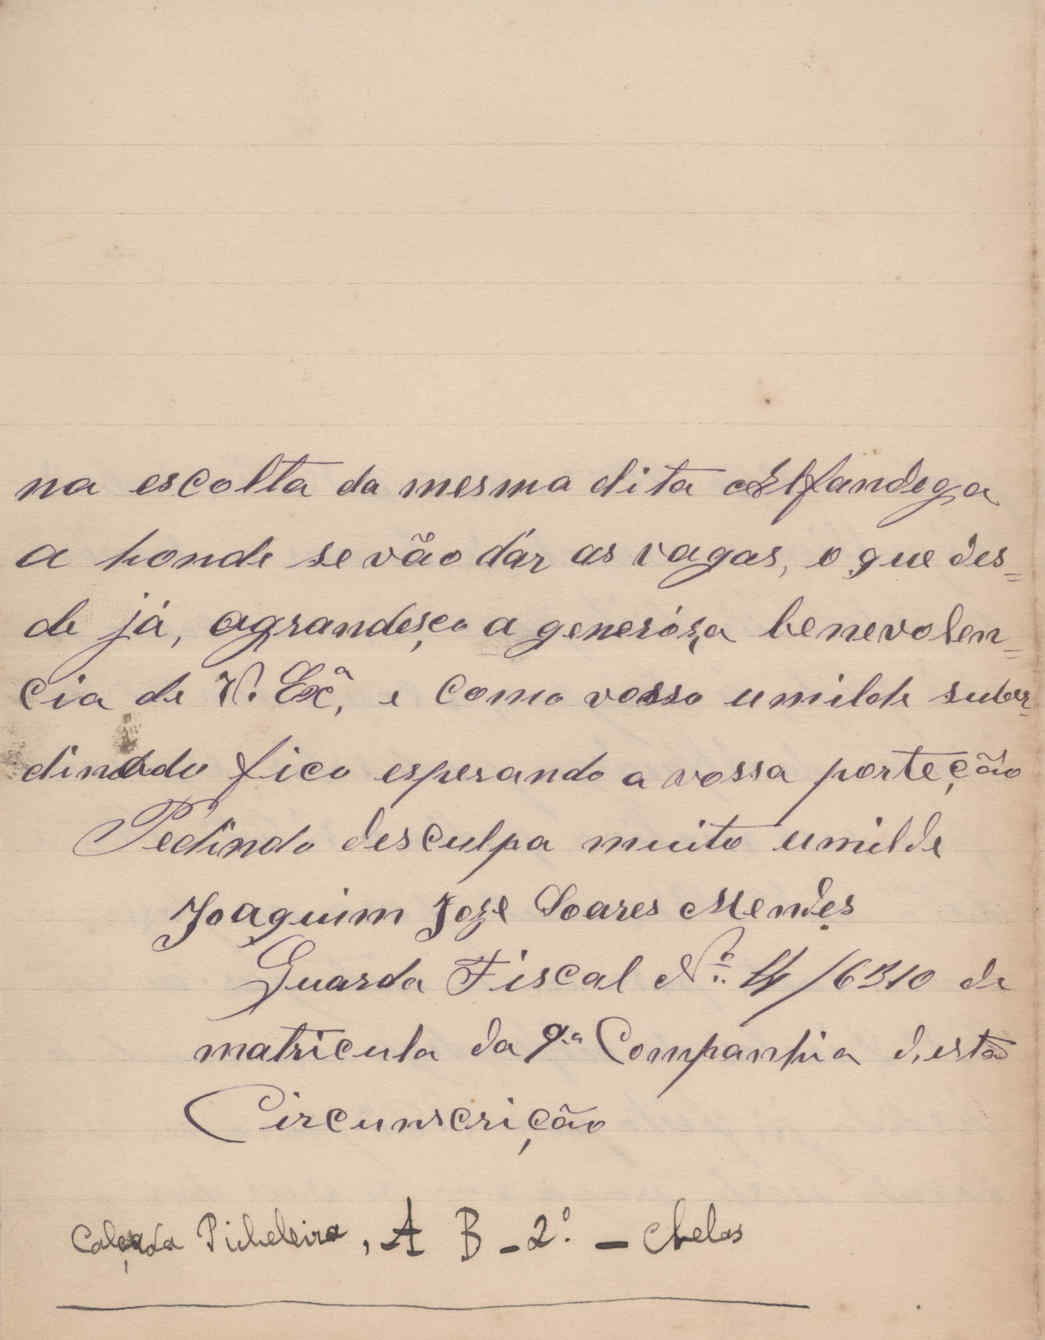 na escolta da mesma dita Alfandega
a honde se vão dár as vagas, o que des=
de já, agrandeşço a generóza benevolen=
cia de V. Exª, e como vosso umilde subor=
dinado fico esperando a vossa porteção
Pedindo desculpa muito umilde
Joaquim Joze Soares Mendes
Guarda Fiscal Nº 4/6310 de
matricula da 9ª Companhia d'esta
Circunscrição
Calçada Picheleira, A B - 2º. - Chelas